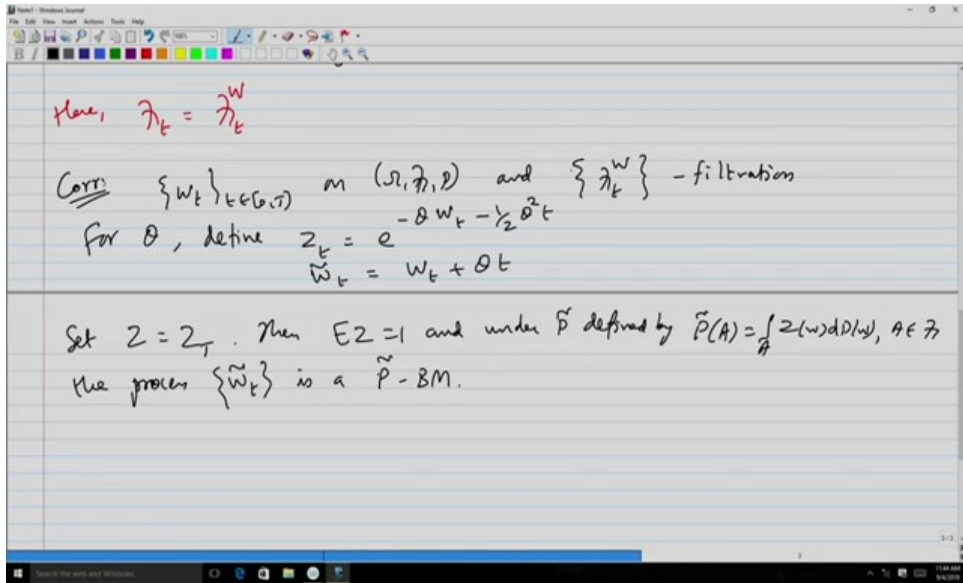 Note1 - Windows Journal
File Edit View Insert Actions Tools Help
Here, ℱ_t = ℱ_t^W
Corr: {W_t}_{t∈[0,T]} on (Ω, ℱ, P) and {ℱ_t^W} - filtration
For θ, define Z_t = e^{-θW_t - 1/2 θ²t}
W̃_t = W_t + θt
Set Z = Z_T. Then EZ = 1 and under P̃ defined by P̃(A) = ∫_A Z(ω)dP(ω), A∈ℱ
the process {W̃_t} is a P̃ - BM.
Search the web and Windows
11:44 AM